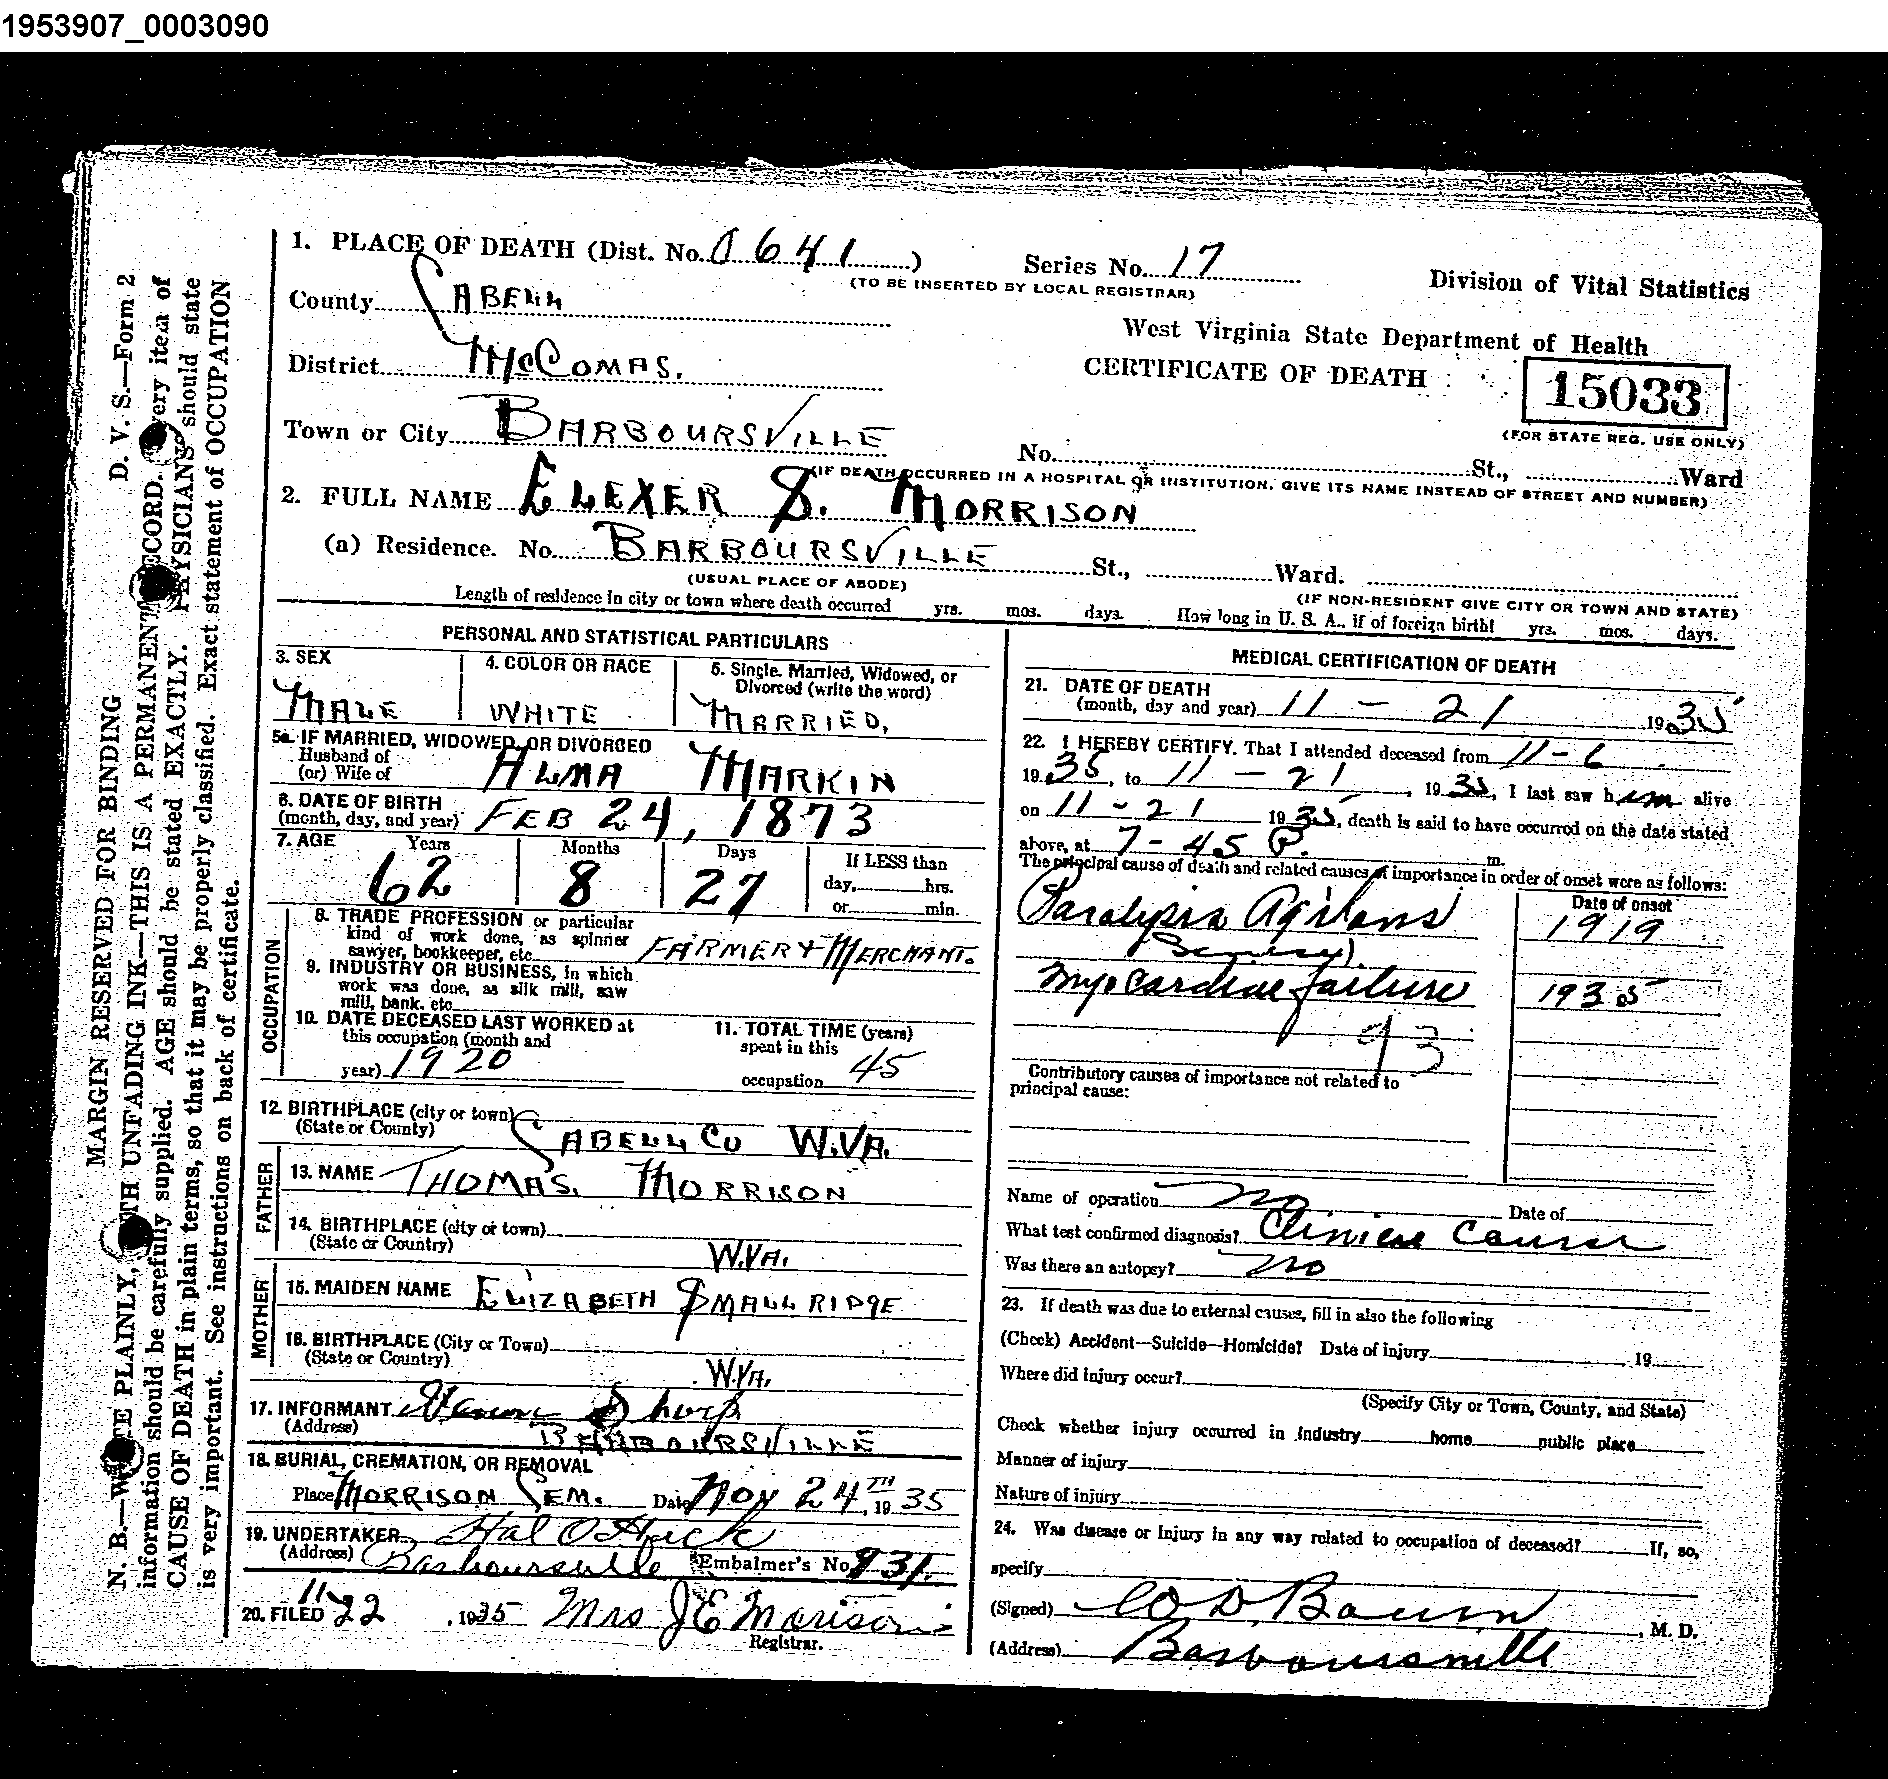 1953907_0003090
D. V. S.—Form 2
MARGIN RESERVED FOR BINDING
N. B.—WRITE PLAINLY, WITH UNFADING INK—THIS IS A PERMANENT RECORD. Every item of
information should be carefully supplied. AGE should be stated EXACTLY. PHYSICIANS should state
CAUSE OF DEATH in plain terms, so that it may be properly classified. Exact statement of OCCUPATION
is very important. See instructions on back of certificate.
1. PLACE OF DEATH (Dist. No. 0641) Series No. 17
(TO BE INSERTED BY LOCAL REGISTRAR)
Division of Vital Statistics
County CABELL
West Virginia State Department of Health
District McCOMAS.
CERTIFICATE OF DEATH
15033
(FOR STATE REG. USE ONLY)
Town or City BARBOURSVILLE
No. St., Ward
(IF DEATH OCCURRED IN A HOSPITAL OR INSTITUTION, GIVE ITS NAME INSTEAD OF STREET AND NUMBER)
2. FULL NAME ELEXER S. MORRISON
(a) Residence. No. BARBOURSVILLE St., Ward.
(USUAL PLACE OF ABODE) (IF NON-RESIDENT GIVE CITY OR TOWN AND STATE)
Length of residence in city or town where death occurred yrs. mos. days. How long in U. S. A., if of foreign birth? yrs. mos. days.
PERSONAL AND STATISTICAL PARTICULARS
3. SEX 4. COLOR OR RACE 5. Single, Married, Widowed, or
Divorced (write the word)
MALE WHITE MARRIED,
5a. IF MARRIED, WIDOWED, OR DIVORCED
Husband of
(or) Wife of ALMA MARKIN
6. DATE OF BIRTH
(month, day, and year) FEB 24, 1873
7. AGE Years Months Days If LESS than
62 8 27 day, hrs.
or min.
OCCUPATION
8. TRADE PROFESSION or particular
kind of work done, as spinner
sawyer, bookkeeper, etc. FARMER & MERCHANT.
9. INDUSTRY OR BUSINESS, in which
work was done, as silk mill, saw
mill, bank, etc.
10. DATE DECEASED LAST WORKED at
this occupation (month and
year) 1920
11. TOTAL TIME (years)
spent in this
occupation 45
12. BIRTHPLACE (city or town)
(State or County) CABELL CO W.VA.
FATHER
13. NAME THOMAS. MORRISON
14. BIRTHPLACE (city or town)
(State or Country) W.VA.
MOTHER
15. MAIDEN NAME ELIZABETH SMALLRIDGE
16. BIRTHPLACE (City or Town)
(State or Country) W.VA.
17. INFORMANT
(Address) BARBOURSVILLE
18. BURIAL, CREMATION, OR REMOVAL
Place MORRISON CEM. Date NOV 24TH, 1935
19. UNDERTAKER Hal O Huck
(Address) Barboursville Embalmer's No. 931.
20. FILED 11-22, 1935 Mrs J E Morison
Registrar.
MEDICAL CERTIFICATION OF DEATH
21. DATE OF DEATH
(month, day and year) 11 - 21 1935
22. I HEREBY CERTIFY, That I attended deceased from 11-6
1935, to 11 - 21, 1935, I last saw him alive
on 11-21 1935, death is said to have occurred on the date stated
above, at 7-45 P. m.
The principal cause of death and related causes of importance in order of onset were as follows:
Date of onset
Paralysis Agitans 1919
Myocardial failure 1935
93
Contributory causes of importance not related to
principal cause:
Name of operation no Date of
What test confirmed diagnosis? Clinical Course
Was there an autopsy? no
23. If death was due to external causes, fill in also the following
(Check) Accident—Suicide—Homicide? Date of injury 19
Where did injury occur?
(Specify City or Town, County, and State)
Check whether injury occurred in industry home public place
Manner of injury
Nature of injury
24. Was disease or Injury in any way related to occupation of deceased? If, so,
specify
(Signed) , M. D.
(Address) Barboursville